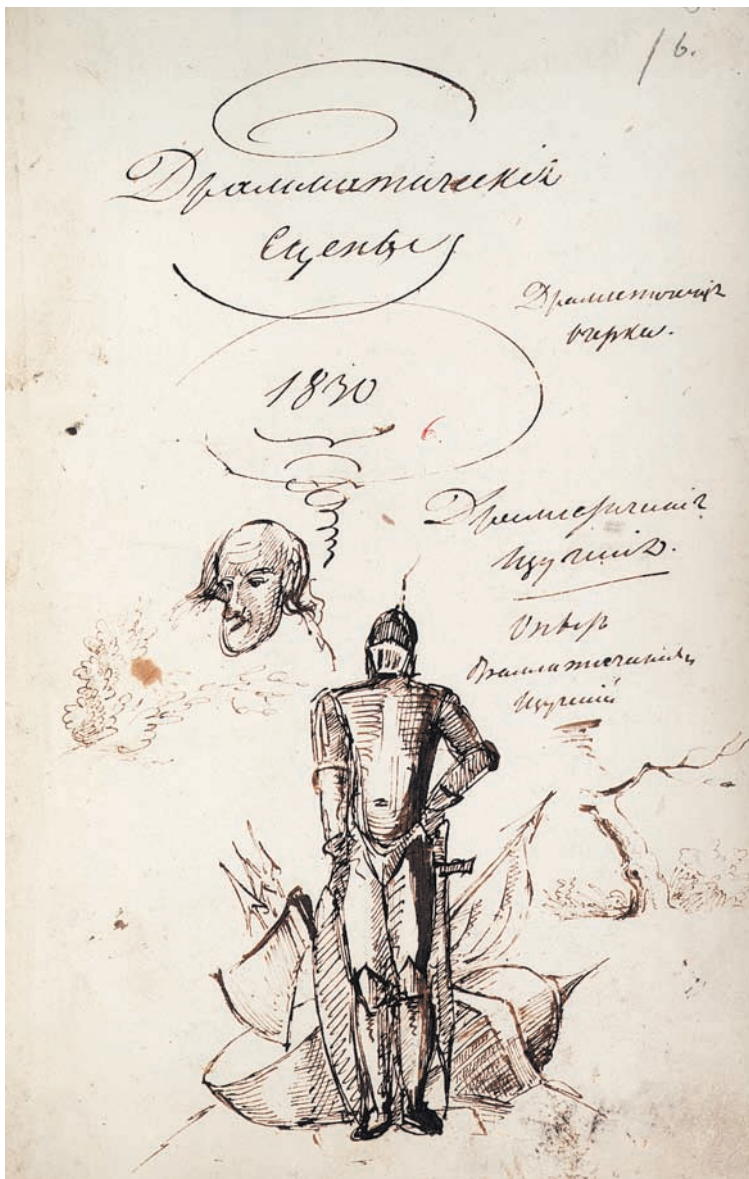 16.
Драмматическія
Сцены
Драматическіе
очерки.
1830
6.
Драматическія
изученія.
Опытъ
Драматическихъ
изученій